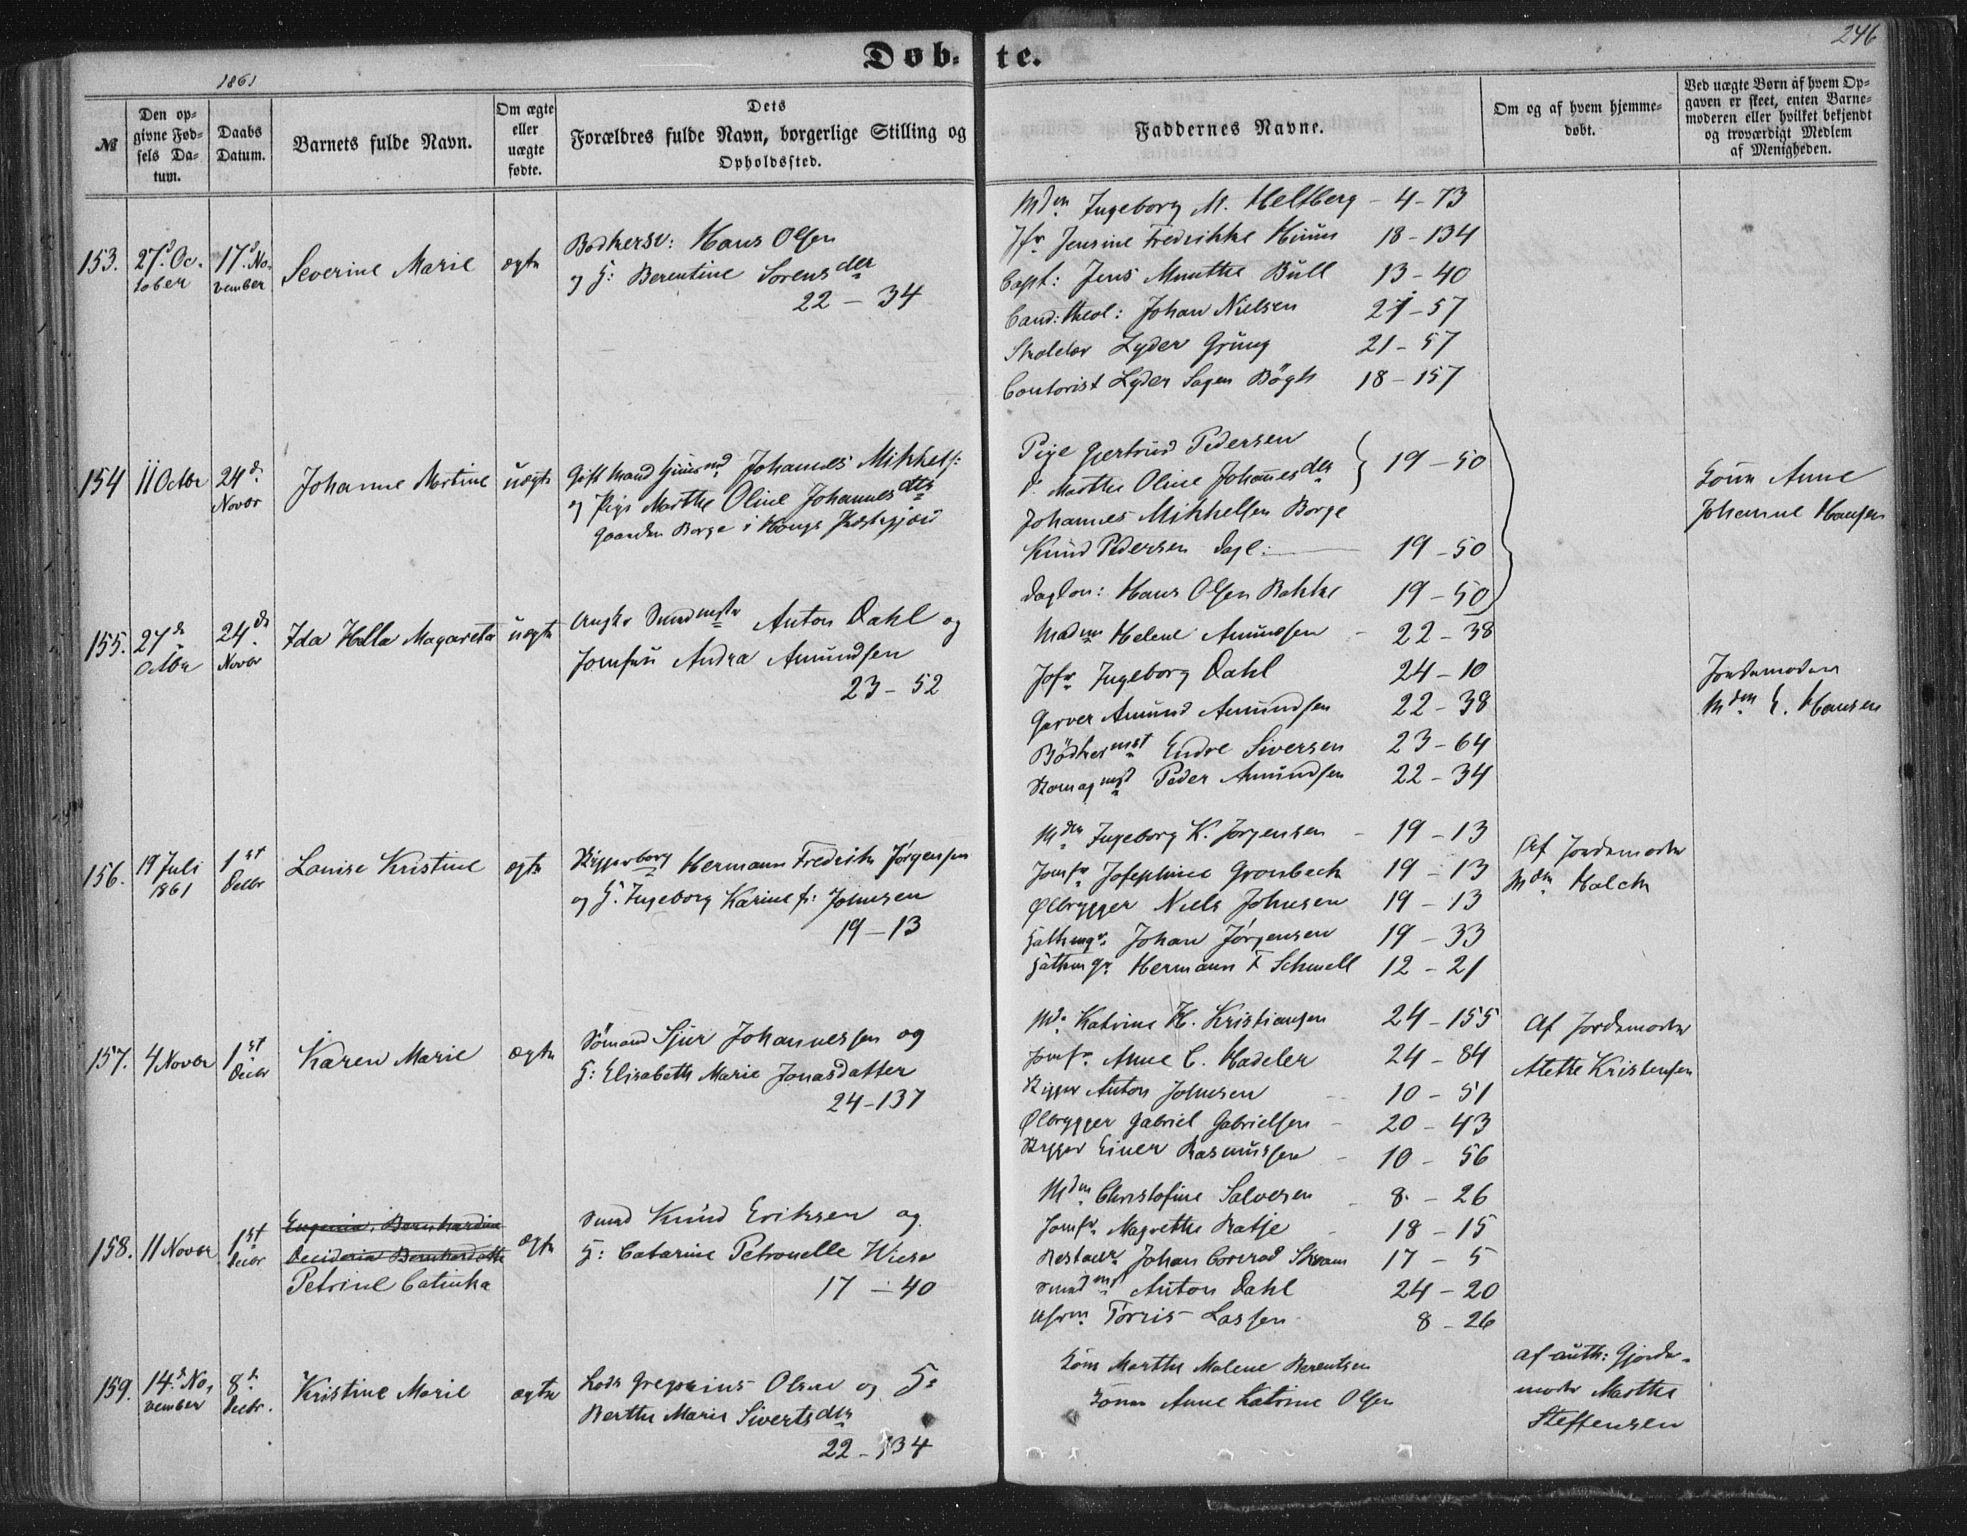 246
Døb-te.
1861
№
Den opgivne Fødsels Datum.
Daabs Datum.
Barnets fulde Navn.
Om ægte eller uægte fødte.
Dets Forældres fulde Navn, borgerlige Stilling og Opholdssted.
Faddernes Navne.
Om og af hvem hjemmedøbt.
Ved uægte Børn af hvem Opgaven er skeet, enten Barnemoderen eller hvilket bekjendt og troværdigt Medlem af Menigheden.
153. 27d Oc-
tober
17d No-
vember
Severine Marie
ægte
Bødkersv: Hans Olsen
og H: Berentine Sørensder
22 - 34
Mdm Ingeborg M. Heltberg - 4-73
Jfr Jensine Fredrikke Huun 18-134
Capt: Jens Munthe Bull 13-40
Cand: theol: Johan Nielsen 21-57
Lyder Grung 21-57
Contorist Lyder Sagen Bøgh 18-157
154 11 Octbr
24d
Novbr
Johanne Martine
uægte
Gift Mand Johannes Mikkels:
og Pige Marthe Oline Johannesdtr
Gaarden Borge i Houge Præstegjæld
Pige Gjertrud Pedersen
P. Marthe Oline Johannesder } 19-50
Johannes Mikkelsen Borge
Knud Pedersen dagl: 19-50
Daglon: Hans Olsen Bakke 19-50
Anne
Johanne Hansen
155. 27d
Octbr
24d
Novbr
Ida Halla Magareta
uægte
Smedmstr Anton Dahl og
Jomfru Andra Amundsen
23-52
Madm Helene Amundsen - 22-38
Jofr Ingeborg Dahl 24-10
Garver Amund Amundsen 22-38
Bødkermst Endre Siversen 23-64
Peder Amundsen 22-34
Jordemoder
Mdm E. Hansen
156. 19 Juli
1861
1st
Decbr
Louise Kristine
ægte
Hermann Fredrik Jørgensen
og H. Ingeborg Karine f: Johnsen
19-13
Mdm Ingeborg K. Jørgensen - 19-13
Jomfr Josephine Gronbech 19-13
Ølbrygger Niels Johnsen 19-13
Johan Jørgensen 19-33
Hermann F Schnell 12-21
Af Jordemoder
Mdm Kalch
157. 4 Novbr
1st
Decbr
Karen Marie
ægte
Sømand Sjur Johannessen og
H: Elisabeth Marie Jonasdatter
24-137
Md. Katrine H. Kristiansen 24-155
Jomfr Anne C. Madeler 24-84
Skipper Anton Johnsen - 10-51
Ølbrygger Gabriel Gabrielsen - 20-43
Skipper Einer Rasmussen - 10-56
Af Jordemoder
Alethe Kristensen
158. 11 Novbr
1st
Decbr
Eugenia Bernhardine
Desideria Bernhardotte
Petrine Catinka
ægte
Smed Knud Eriksen og
H: Catarine Petronelle Wiese
17-40
Mdm Christofine Salvesen - 8-26
Jomfr. Magrethe Ratje - 18-15
Johan Conrad 17-5
Smedmst Anton Dahl 24-20
Torris Lassen 8-26
159. 14d No-
vember
8d
Decbr.
Kristine Marie
ægte
Lods Gregorius Olsen og H:
Berthe Marie Sivertsder
22-134
Marthe Malene Berentsen
Anne Katrine Olsen
Af auth: Gjorde-
moder Marthe
Steffensen